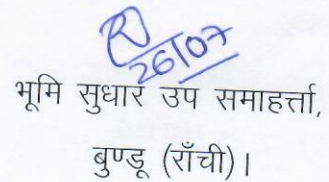 26/07
भूमि सुधार उप समाहर्त्ता,
बुण्डू (राँची)।